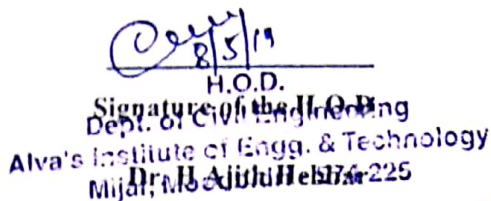 8/5/19
H.O.D.
Signature of the H.O.D
Dept. of Civil Engineering
Alva's Institute of Engg. & Technology
Dr. H Ajith Hebbar
Mijar, 574-225